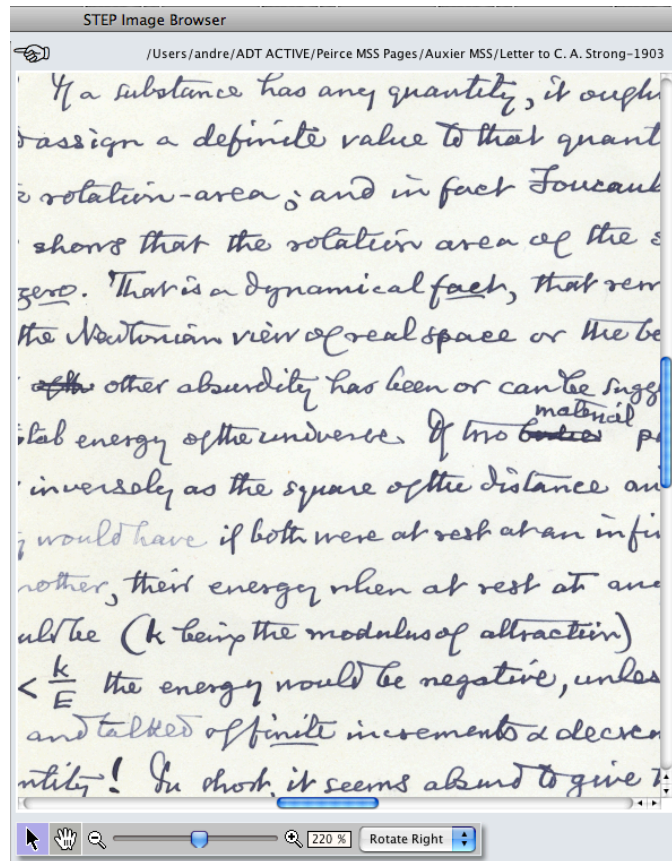 STEP Image Browser
/Users/andre/ADT ACTIVE/Peirce MSS Pages/Auxier MSS/Letter to C. A. Strong-1903
If a substance has any quantity, it ough
assign a definite value to that quant
rotation-area; and in fact Foucaul
shows that the rotation area of the s
zero. That is a dynamical fact, that rem
the Newtonian view of real space or the be
other absurdity has been or can be sugg
energy of the universe. If two material p
inversely as the square of the distance an
would have if both were at rest at an infi
nother, their energy when at rest at an
uld be (k being the modulus of attraction)
< k/E the energy would be negative, unles
and talked of finite increments & decrem
ntity! In short, it seems absurd to give
220 % Rotate Right